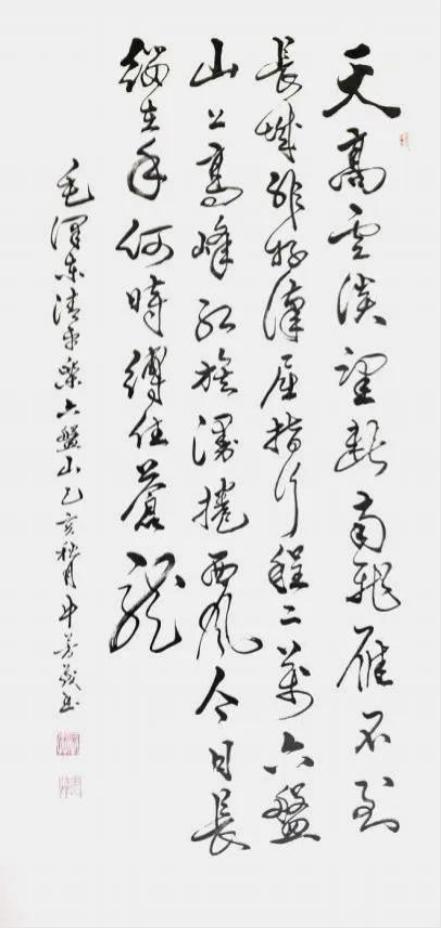 天高雲淡望斷南飛雁不到
長城非好漢屈指行程二萬六盤
山上高峰紅旗漫捲西風今日長
纓在手何時縛住蒼龍
毛澤東清平樂六盤山乙亥秋月牛芳茂書